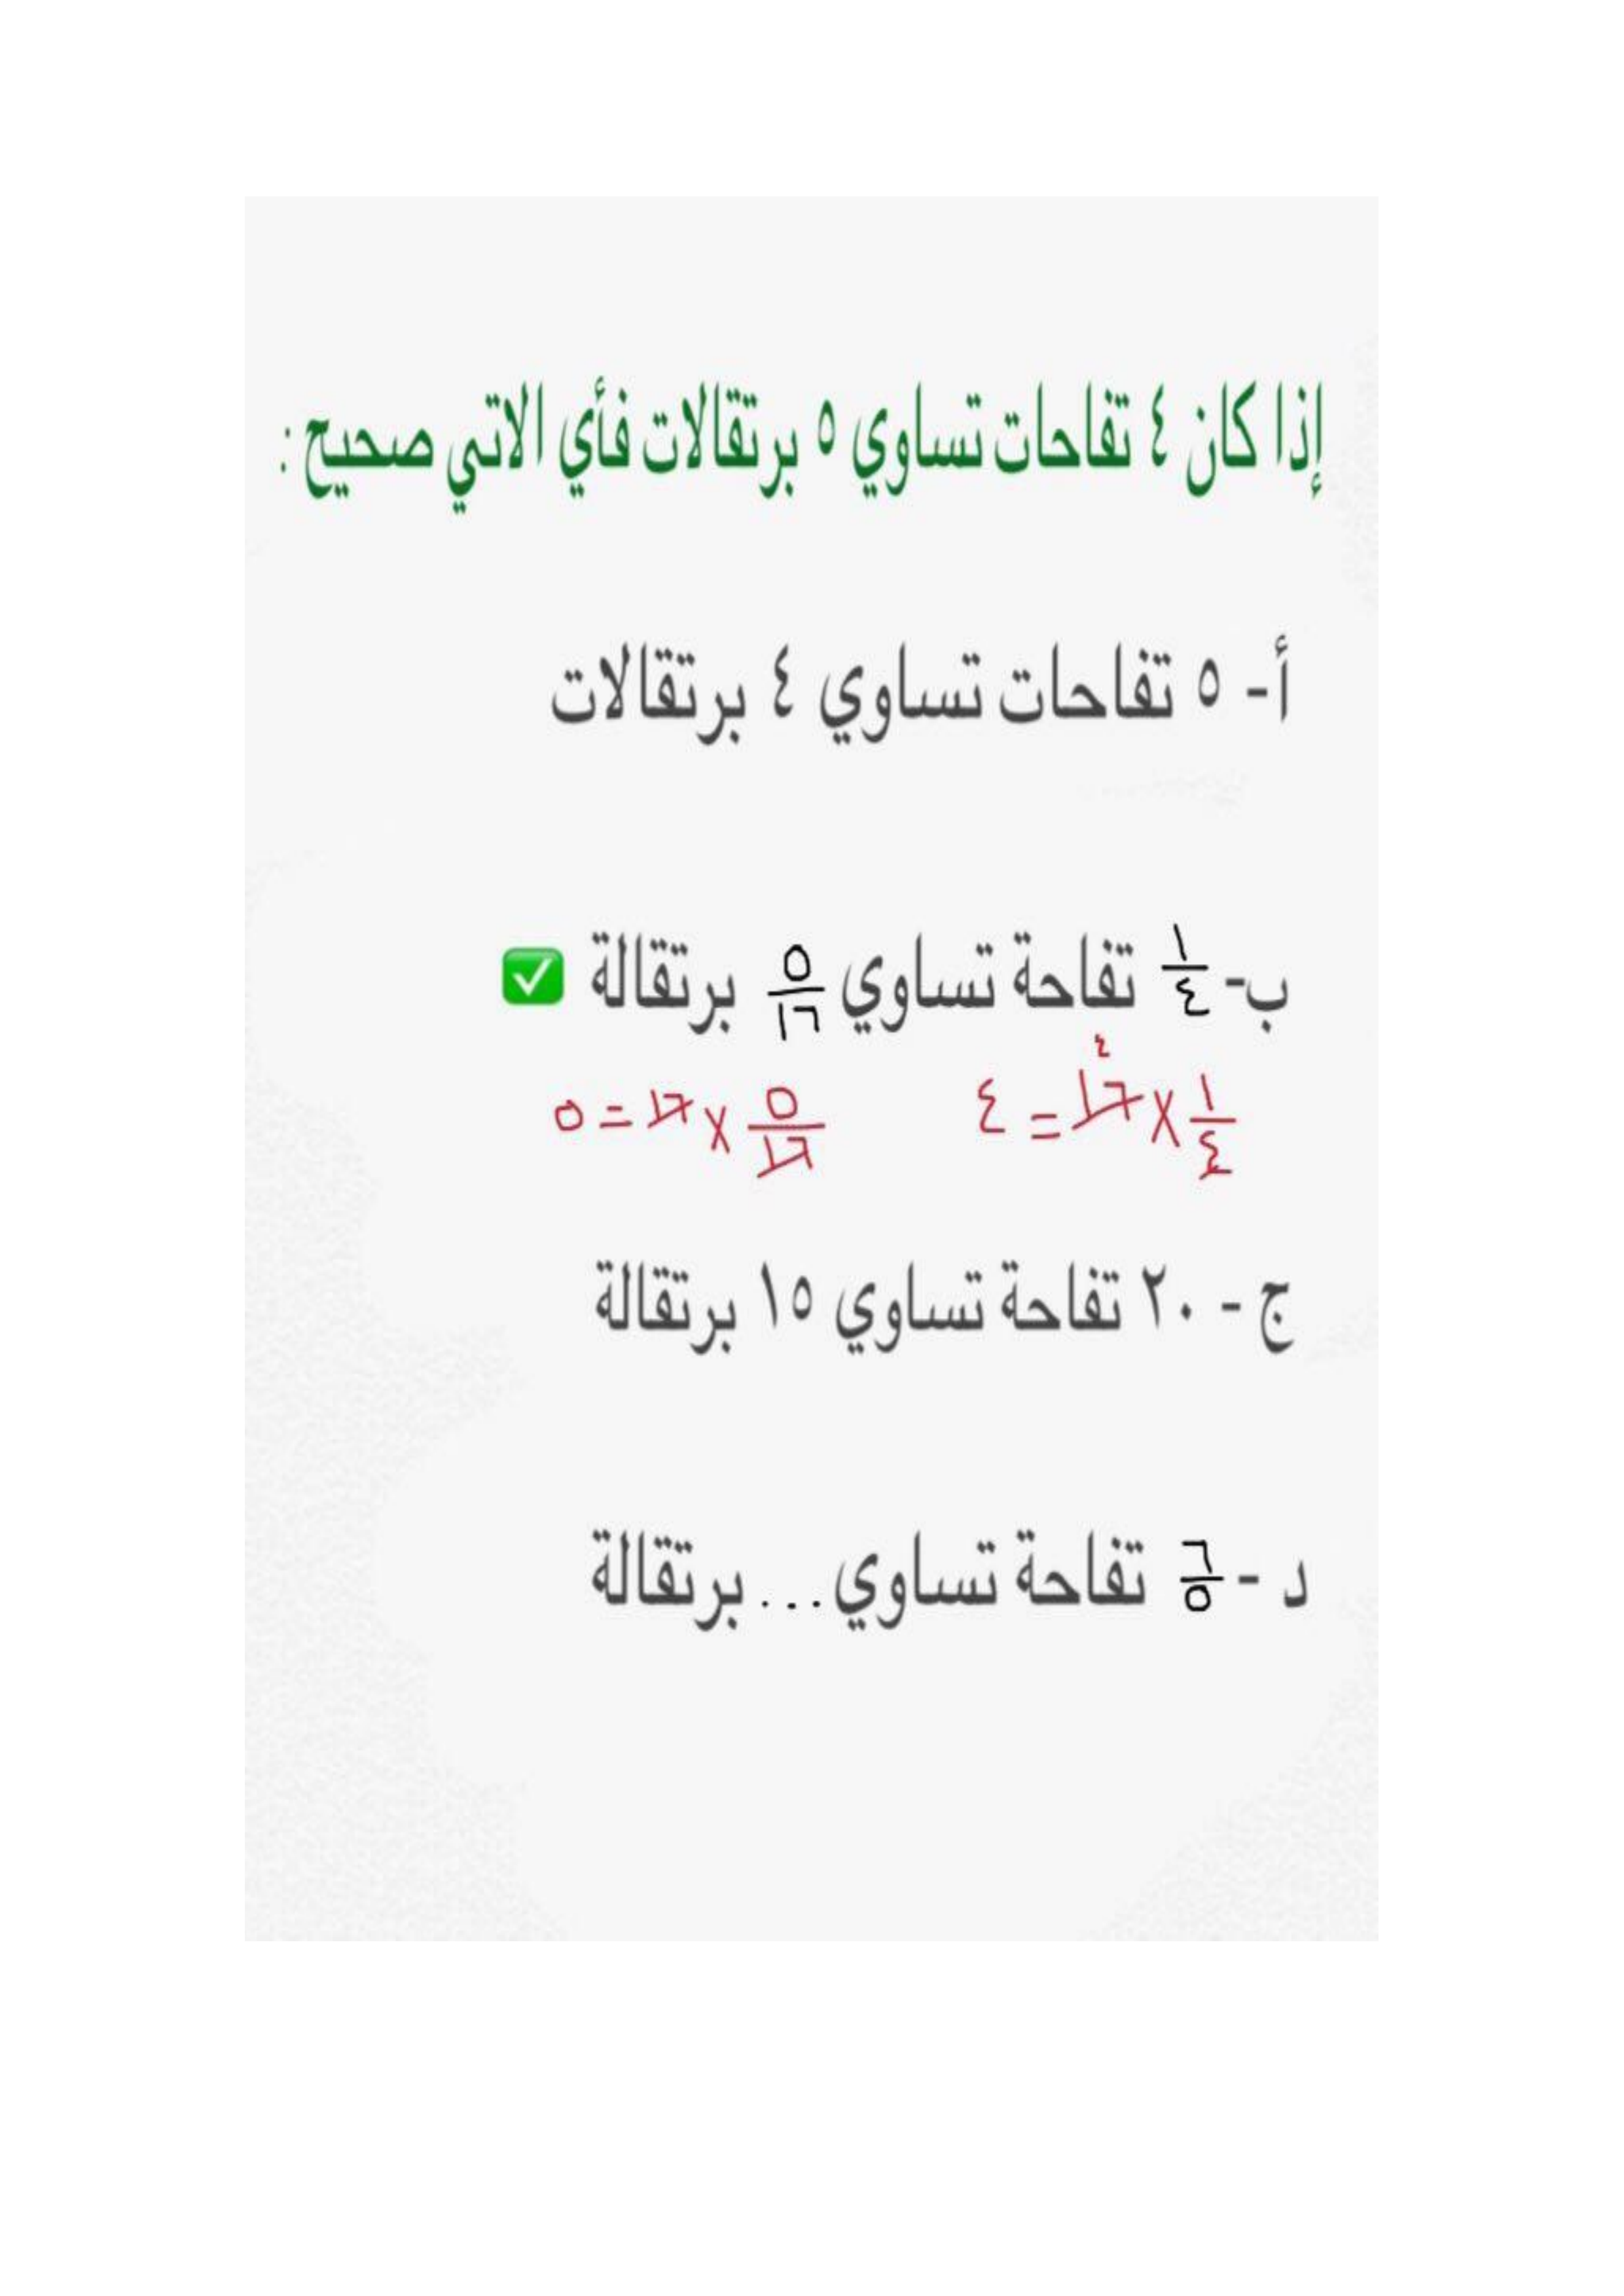 إذا كان ٤ تفاحات تساوي ٥ برتقالات فأي الاتي صحيح :
أ- ٥ تفاحات تساوي ٤ برتقالات
ب- ١/٤ تفاحة تساوي ٥/١٦ برتقالة ✅
١/٤ × ١٦ = ٤ ٥/١٦ × ١٦ = ٥
ج - ٢٠ تفاحة تساوي ١٥ برتقالة
د - ٦/٥ تفاحة تساوي ... برتقالة